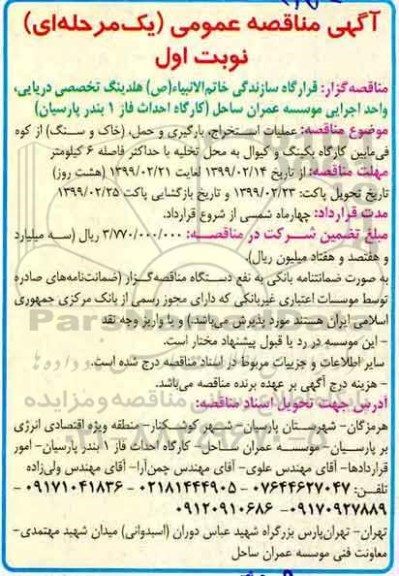 آگهی مناقصه عمومی (یک‌مرحله‌ای)
نوبت اول
مناقصه‌گزار: قرارگاه سازندگی خاتم‌الانبیاء(ص) هلدینگ تخصصی دریایی،
واحد اجرایی موسسه عمران ساحل (کارگاه احداث فاز ۱ بندر پارسیان)
موضوع مناقصه: عملیات استخراج، بارگیری و حمل، (خاک و سنگ) از کوه
فی‌مابین کارگاه یکینگ و کیوال به محل تخلیه با حداکثر فاصله ۶ کیلومتر
مهلت مناقصه: از تاریخ ۱۳۹۹/۰۲/۱۴ لغایت ۱۳۹۹/۰۲/۲۱ (هشت روز)
تاریخ تحویل پاکت: ۱۳۹۹/۰۲/۲۳ و تاریخ بازگشایی پاکت ۱۳۹۹/۰۲/۲۵
مدت قرارداد: چهارماه شمسی از شروع قرارداد.
مبلغ تضمین شرکت در مناقصه: ۳/۷۷۰/۰۰۰/۰۰۰ ریال (سه میلیارد
و هفتصد و هفتاد میلیون ریال).
به صورت ضمانتنامه بانکی به نفع دستگاه مناقصه‌گزار (ضمانت‌نامه‌های صادره
توسط موسسات اعتباری غیربانکی که دارای مجوز رسمی از بانک مرکزی جمهوری
اسلامی ایران هستند مورد پذیرش می‌باشد) و یا واریز وجه نقد
- این موسسه در رد یا قبول پیشنهاد مختار است.
سایر اطلاعات و جزییات مربوط در اسناد مناقصه درج شده است.
- هزینه درج آگهی بر عهده برنده مناقصه می‌باشد.
آدرس جهت تحویل اسناد مناقصه:
هرمزگان- شهرستان پارسیان- شهر کوشکنار- منطقه ویژه اقتصادی انرژی
بر پارسیان- موسسه عمران ساحل- کارگاه احداث فاز ۱ بندر پارسیان- امور
قراردادها- آقای مهندس علوی- آقای مهندس چمن‌آرا- آقای مهندس ولی‌زاده
تلفن: ۰۷۶۴۴۶۲۷۰۴۷ - ۰۲۱۸۱۴۴۴۹۰۵ - ۰۹۱۷۱۰۴۱۸۳۶
۰۹۱۲۰۹۱۰۶۸۶ -۰۹۱۷۰۹۲۷۸۸۹
تهران- تهران‌پارس بزرگراه شهید عباس دوران (اسبدوانی) میدان شهید مهتمدی-
معاونت فنی موسسه عمران ساحل